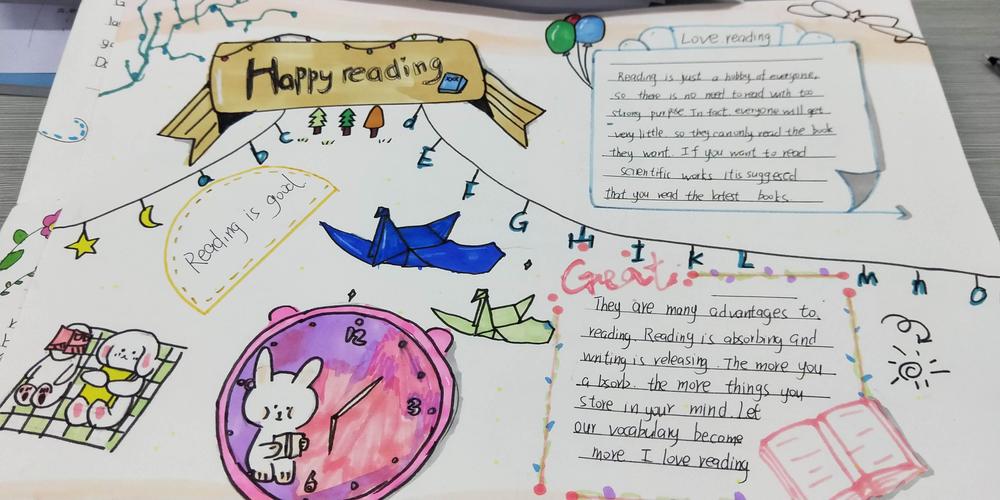 Happy reading
Love reading
Reading is just a hobby of everyone,
so there is no need to read with too
strong purpse In fact. everyone will get
very little so they can only read the book
they want. If you want to read
scientific works it is suggested
that you read the latest books.
Reading is good
C
d
E
F
G
H
I
K
L
m
n
o
Great
They are many advantages to.
reading. Reading is absorbing and
writing is releasing. The more you
absorb. the more things you
store in your mind. Let
our vocabulary become
more. I love reading
12
3
6